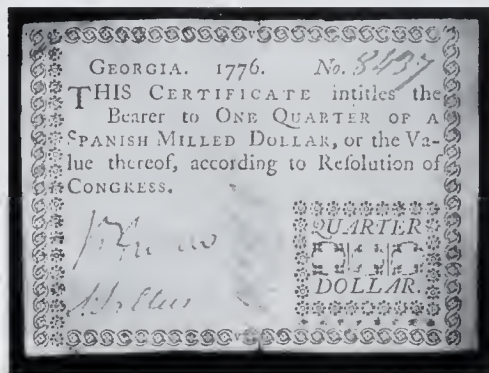 GEORGIA. 1776. No. 8437
THIS CERTIFICATE intitles the
Bearer to ONE QUARTER OF A
SPANISH MILLED DOLLAR, or the Va-
lue thereof, according to Reſolution of
CONGRESS.
QUARTER
DOLLAR.